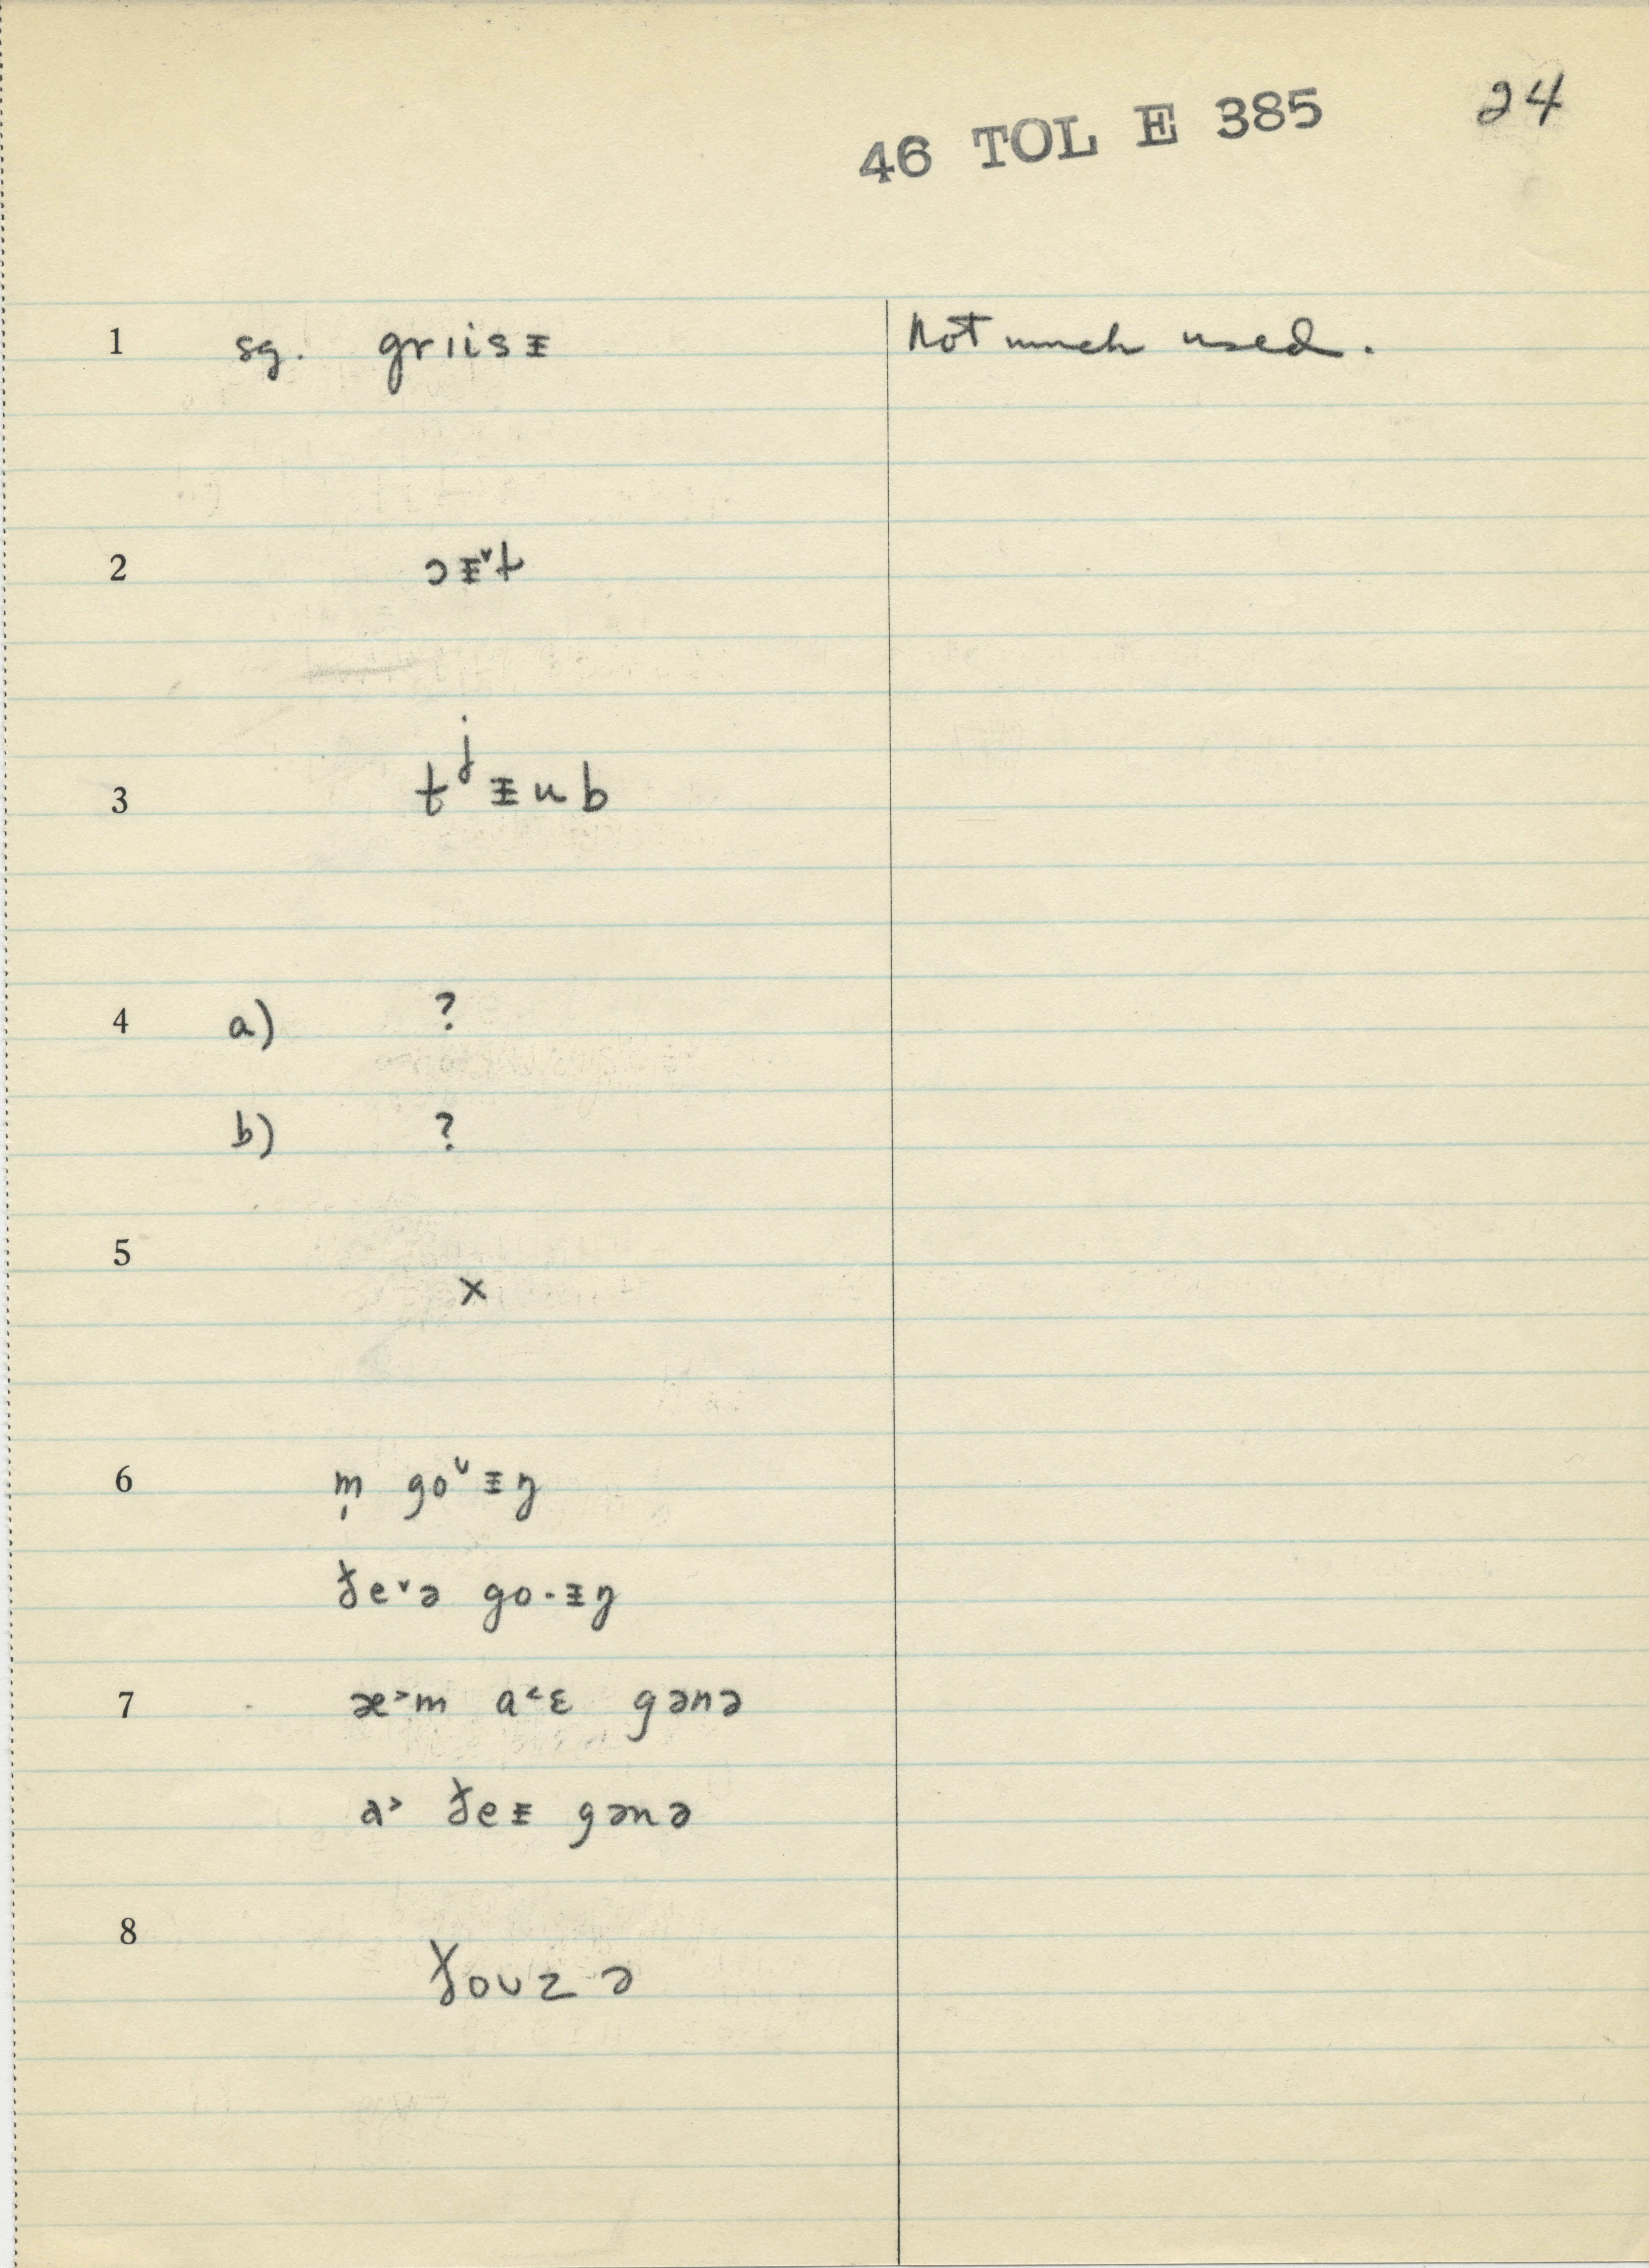 46 TOL E 385 24
1 sg. grɪisᵻ Not much used.
2 ɔᵻ˅t
3 tʲᵻub
4 a) ?
b) ?
5 x
6 m̩ go˅ᵻŋ
ɟe˅ə go·ᵻŋ
7 æ˃m a˂ɛ gənə
a˃ ɟeᵻ gənə
8 ɟoʊzə